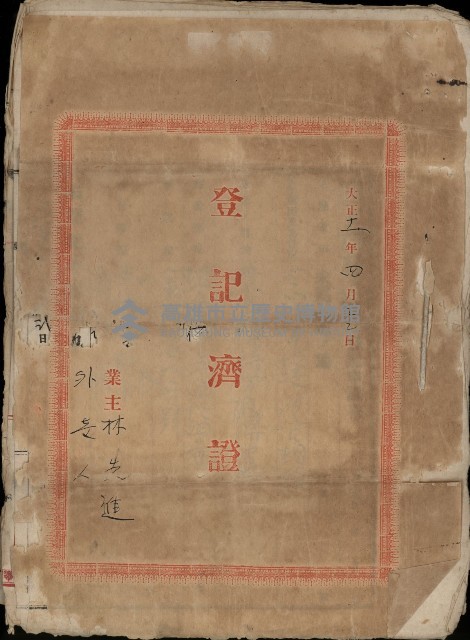 大正十一年四月 日
登記濟證
業主林先進
外 人
高雄市立歷史博物館
KAOHSIUNG MUSEUM OF HISTORY